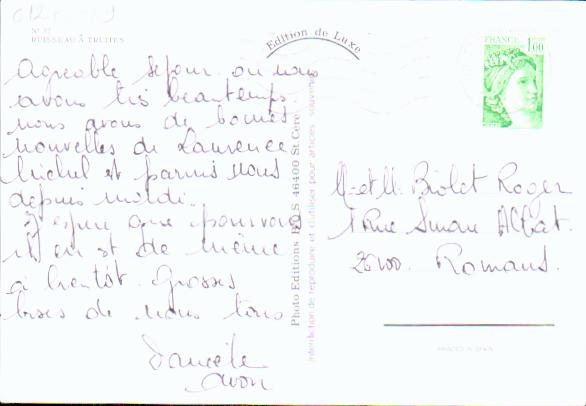 N° 37
RUISSEAU À TRUITES
Edition de Luxe
FRANCE
1,00
Agreable sejour ou nous
avons très beau temps.
nous avons de bonnes
nouvelles de Laurence
Michel et parmis nous
depuis mardi.
J'espere que pour vous
il en est de même
a bientôt. Grosses
bises de nous tous
Photo Editions 46400 St Céré
Interdiction de reproduire et d'utiliser pour articles souvenirs
M. et M. Biolet Roger
1 Rue Simon Albert.
26100. Romans.